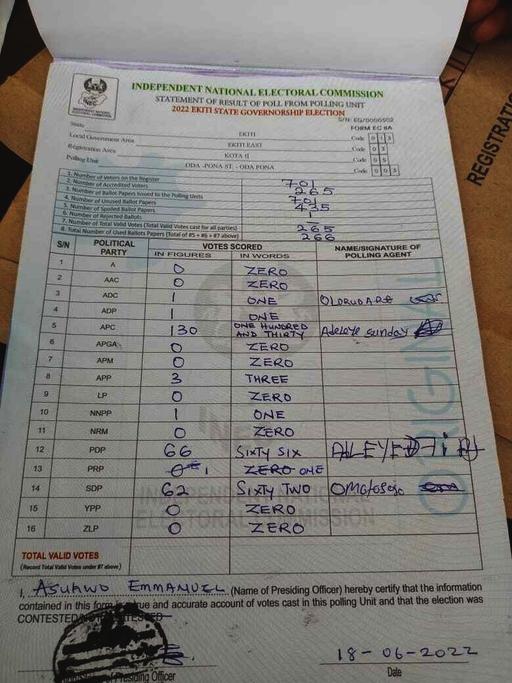 INDEPENDENT NATIONAL ELECTORAL COMMISSION
STATEMENT OF RESULT OF POLL FROM POLLING UNIT
2022 EKITI STATE GOVERNORSHIP ELECTION
FORM EC 8A
State EKITI Code 013
Local Government Area EKITI EAST Code 03
Registration Area KOTA II Code 05
Polling Unit ODA -PONA ST. - ODA PONA Code 003
1. Number of Voters on the Register 701
2. Number of Accredited Voters 265
3. Number of Ballot Papers Issued to the Polling Units 701
4. Number of Unused Ballot Papers 435
5. Number of Spoiled Ballot Papers 1
6. Number of Rejected Ballots
7. Number of Total Valid Votes (Total Valid Votes cast for all parties) 265
8. Total Number of Used Ballots Papers (Total of #5 + #6 + #7 above) 266
S/N POLITICAL PARTY VOTES SCORED NAME/SIGNATURE OF POLLING AGENT
IN FIGURES IN WORDS
1 A 0 ZERO
2 AAC 0 ZERO
3 ADC 1 ONE
4 ADP 1 ONE
5 APC 130 ONE HUNDRED AND THIRTY Adeloye Sunday
6 APGA 0 ZERO
7 APM 0 ZERO
8 APP 3 THREE
9 LP 0 ZERO
10 NNPP 1 ONE
11 NRM 0 ZERO
12 PDP 66 SIXTY SIX
13 PRP 0 1 ZERO ONE
14 SDP 62 SIXTY TWO
15 YPP 0 ZERO
16 ZLP 0 ZERO
TOTAL VALID VOTES
(Record Total Valid Votes under #7 above)
I, ASUKWO EMMANUEL (Name of Presiding Officer) hereby certify that the information
contained in this form is true and accurate account of votes cast in this polling Unit and that the election was
CONTESTED
18-06-2022
Presiding Officer Date
ORIGINAL
REGISTRATION